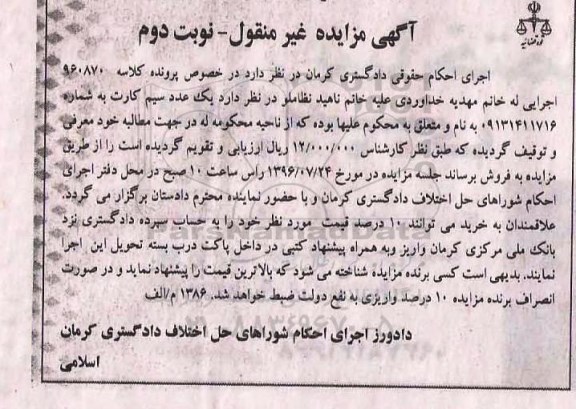 قوه قضائیه
آگهی مزایده غیر منقول- نوبت دوم
اجرای احکام حقوقی دادگستری کرمان در نظر دارد در خصوص پرونده کلاسه ۹۶۰۸۷۰
اجرایی له خانم مهدیه خداوردی علیه خانم ناهید نظاملو در نظر دارد یک عدد سیم کارت به شماره
۰۹۱۳۱۴۱۱۷۱۶ به نام و متعلق به محکوم علیها بوده که از ناحیه محکومه له در جهت مطالبه خود معرفی
و توقیف گردیده که طبق نظر کارشناس ۱۲/۰۰۰/۰۰۰ ریال ارزیابی و تقویم گردیده است را از طریق
مزایده به فروش برساند جلسه مزایده در مورخ ۱۳۹۶/۰۷/۲۴ راس ساعت ۱۰ صبح در محل دفتر اجرای
احکام شوراهای حل اختلاف دادگستری کرمان و با حضور نماینده محترم دادستان برگزار می گردد.
علاقمندان به خرید می توانند ۱۰ درصد قیمت مورد نظر خود را به حساب سپرده دادگستری نزد
بانک ملی مرکزی کرمان واریز وبه همراه پیشنهاد کتبی در داخل پاکت درب بسته تحویل این اجرا
نمایند. بدیهی است کسی برنده مزایده شناخته می شود که بالاترین قیمت را پیشنهاد نماید و در صورت
انصراف برنده مزایده ۱۰ درصد واریزی به نفع دولت ضبط خواهد شد. ۱۳۸۶ م/الف
دادورز اجرای احکام شوراهای حل اختلاف دادگستری کرمان
اسلامی